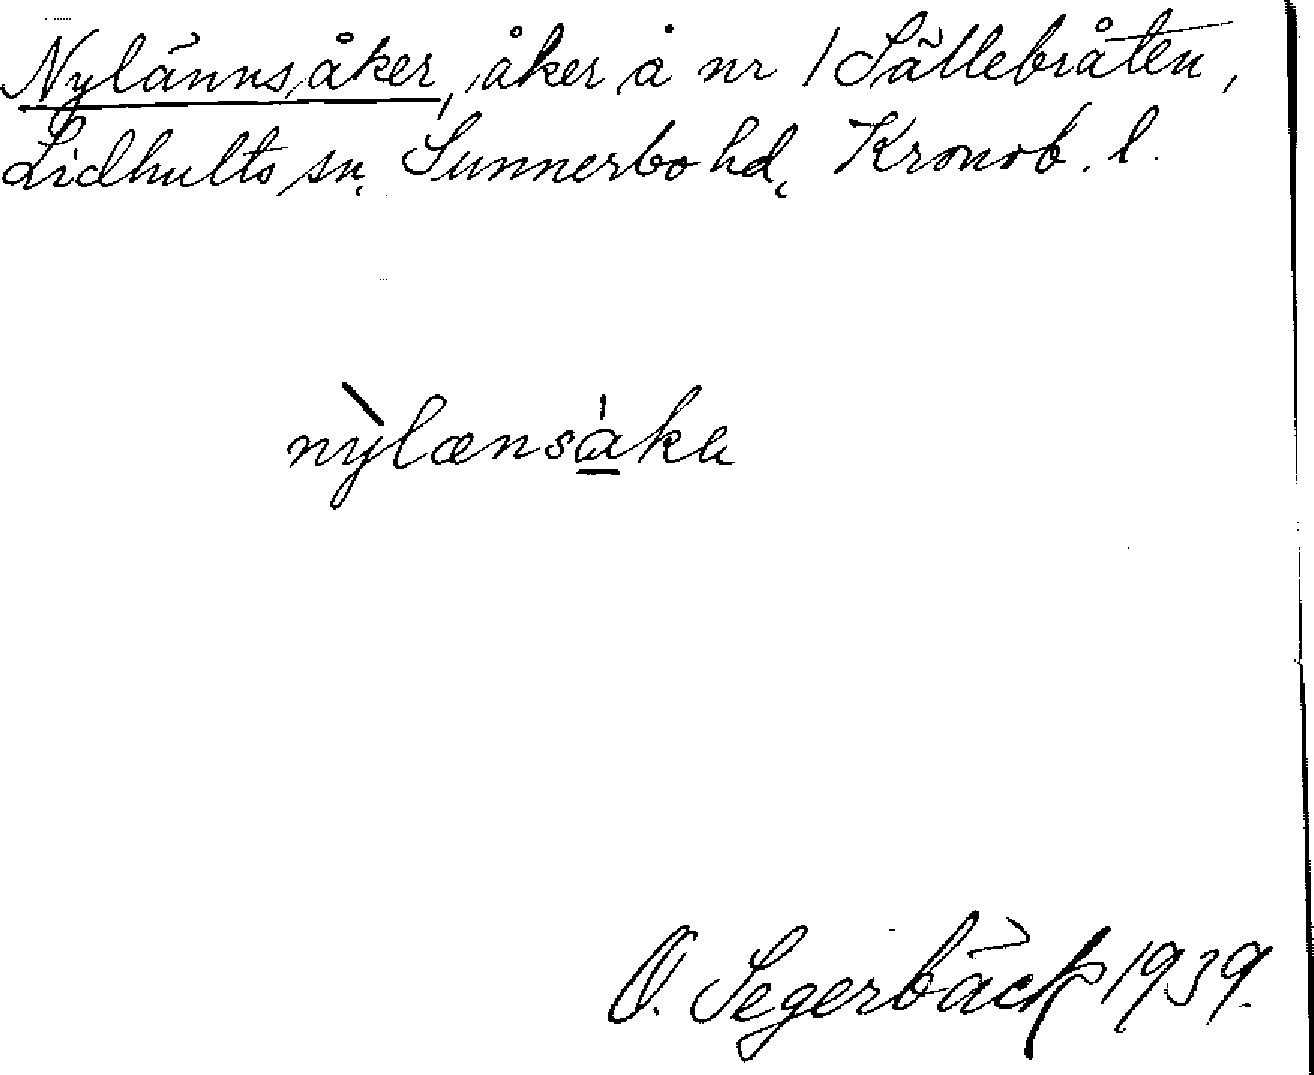 Nylännsåker, åker å nr 1 Sällebråten,
Lidhults sn, Sunnerbo hd, Kronob. l.
nỳlænsákɐ
O. Segerbäck 1939.